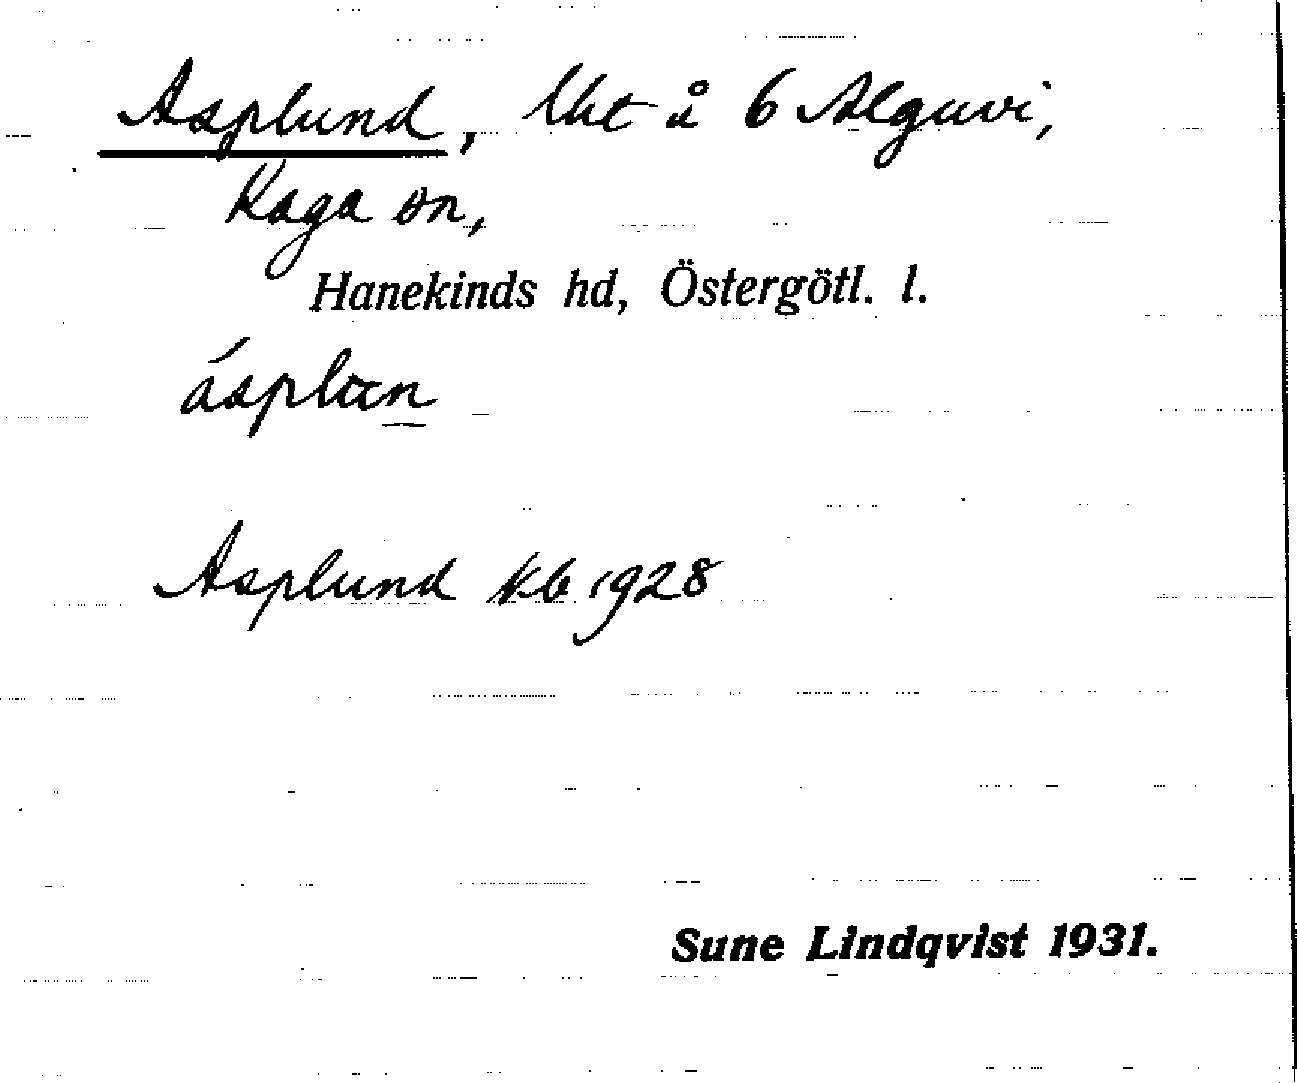 Asplund, Uht å 6 Alguvi,
Kaga sn,
Hanekinds hd, Östergötl. l.
ásplun
Asplund kb 1928
Sune Lindqvist 1931.